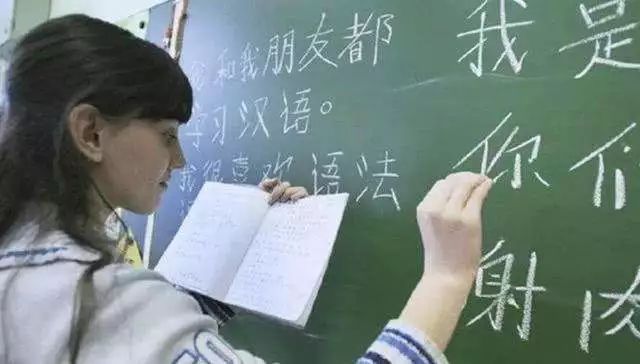 和我朋友都
学习汉语。
我很喜欢语法
我是
你们
射肉